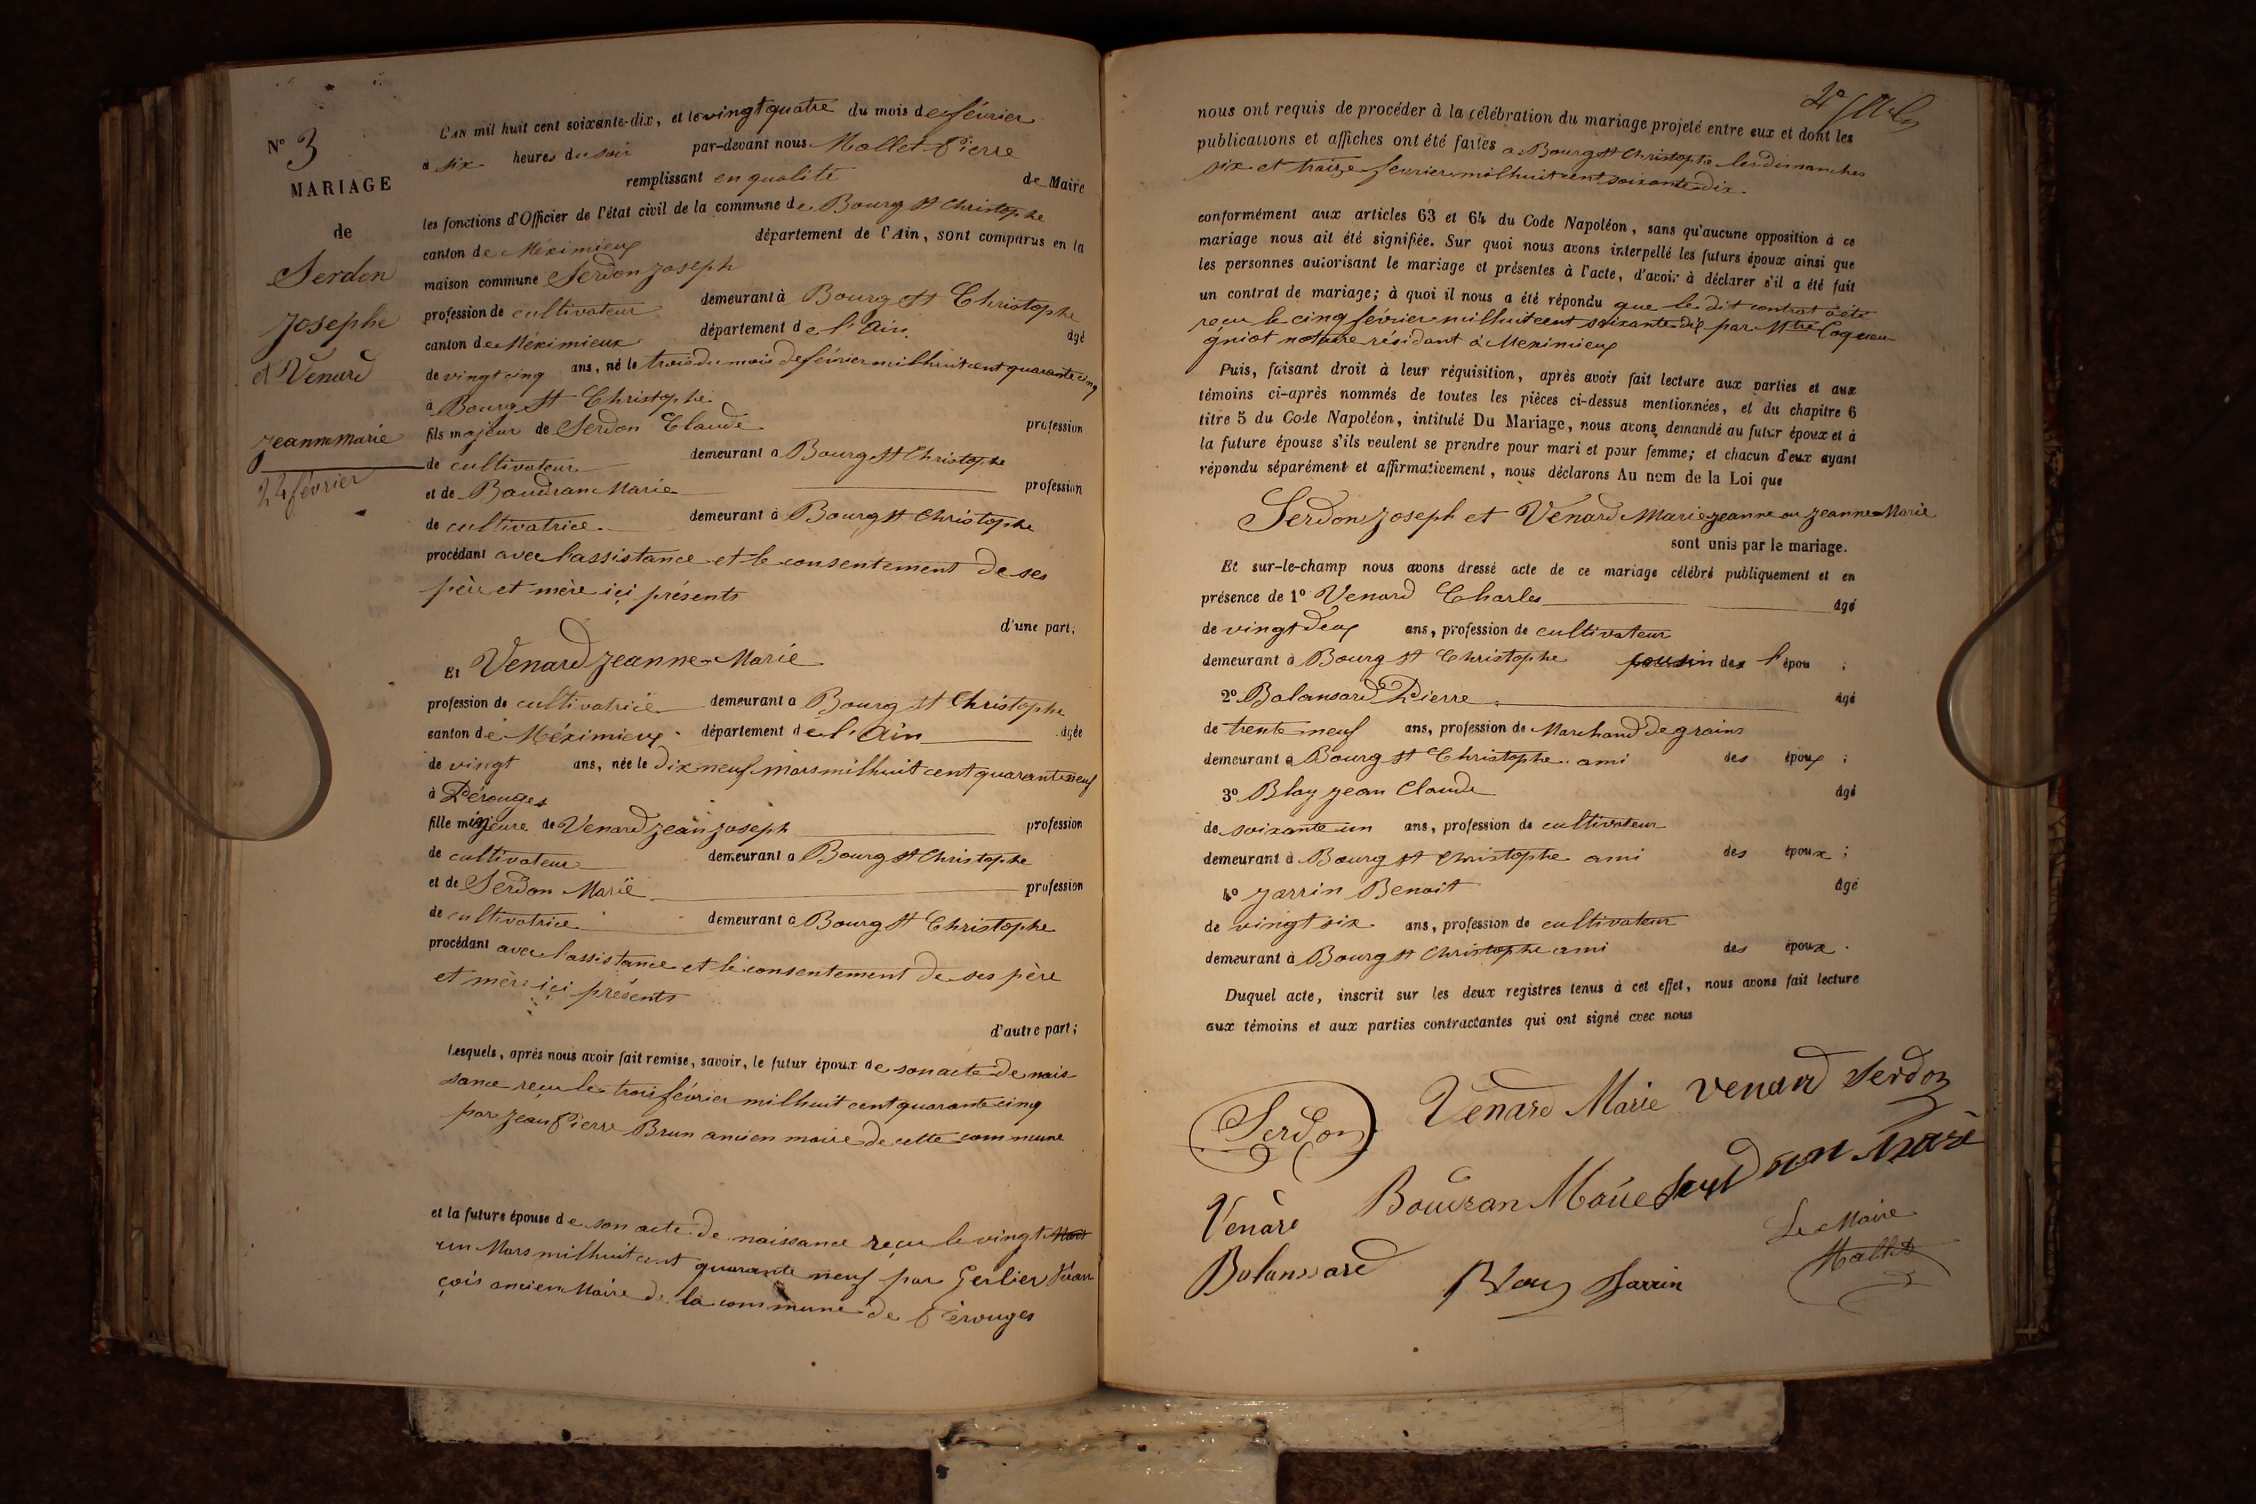 N° 3
MARIAGE
de
Serdon
Josephe
et Venard
Jeanne Marie
24 février
L'AN mil huit cent soixante-dix, et le vingt quatre du mois de février
à six heures du soir par-devant nous Mollet Pierre
remplissant en qualité de Maire
les fonctions d'Officier de l'état civil de la commune de Bourg St Christophe
canton de Méximieux département de l'Ain, sont comparus en la
maison commune Serdon Joseph
profession de cultivateur demeurant à Bourg St Christophe
canton de Méximieux département de l'Ain âgé
de vingt cinq ans, né le trois du mois de février mil huit cent quarante cinq
à Bourg St Christophe
fils majeur de Serdon Claude profession
de cultivateur demeurant à Bourg St Christophe
et de Baudran Marie profession
de cultivatrice demeurant à Bourg St Christophe
procédant avec l'assistance et le consentement de ses
père et mère içi présents
d'une part;
Et Venard Jeanne-Marie
profession de cultivatrice demeurant à Bourg St Christophe
canton de Méximieux département de l'Ain âgée
de vingt ans, née le dix neuf mars mil huit cent quarante neuf
à Pérouges
fille mineure de Venard Jean Joseph profession
de cultivateur demeurant à Bourg St Christophe
et de Serdon Marie profession
de cultivatrice demeurant à Bourg St Christophe
procédant avec l'assistance et le consentement de ses père
et mère içi présents
d'autre part;
Lesquels, après nous avoir fait remise, savoir, le futur époux de son acte de nais
sance reçu le trois février mil huit cent quarante cinq
par Jean Pierre Brun ancien maire de cette commune
et la future épouse de son acte de naissance reçu le vingt Mars
un Mars mil huit cent quarante neuf par Gerlier Fran
çois ancien Maire de la commune de Pérouges
nous ont requis de procéder à la célébration du mariage projeté entre eux et dont les
publications et affiches ont été faites à Bourg St Christophe les dimanches
six et traize février mil huit cent soixante dix.
conformément aux articles 63 et 64 du Code Napoléon, sans qu'aucune opposition à ce
mariage nous ait été signifiée. Sur quoi nous avons interpellé les futurs époux ainsi que
les personnes autorisant le mariage et présentes à l'acte, d'avoir à déclarer s'il a été fait
un contrat de mariage; à quoi il nous a été répondu que le dit contrat a été
reçu le cinq février mil huit cent soixante dix par Mtre Coquen
gniot notaire résidant à Meximieux
Puis, faisant droit à leur réquisition, après avoir fait lecture aux parties et aux
témoins ci-après nommés de toutes les pièces ci-dessus mentionnées, et du chapitre 6
titre 5 du Code Napoléon, intitulé Du Mariage, nous avons demandé au futur époux et à
la future épouse s'ils veulent se prendre pour mari et pour femme; et chacun d'eux ayant
répondu séparément et affirmativement, nous déclarons Au nom de la Loi que
Serdon Joseph et Venard Marie jeanne ou Jeanne-Marie
sont unis par le mariage.
Et sur-le-champ nous avons dressé acte de ce mariage célébré publiquement et en
présence de 1° Venard Charles âgé
de vingt deux ans, profession de cultivateur
demeurant à Bourg St Christophe cousin des l'épou ;
2° Balansard Pierre âgé
de trente neuf ans, profession de Marchand de grains
demeurant à Bourg St Christophe ami des époux ;
3° Blay Jean Claude âgé
de soixante un ans, profession de cultivateur
demeurant à Bourg St Christophe ami des époux ;
4° Jarrin Benoit âgé
de vingt six ans, profession de cultivateur
demeurant à Bourg St Christophe ami des époux .
Duquel acte, inscrit sur les deux registres tenus à cet effet, nous avons fait lecture
aux témoins et aux parties contractantes qui ont signé avec nous
Serdon Venard Marie venard Serdon
Venard Baudran Marie
Le Maire
Balansard Blay Jarrin Mollet